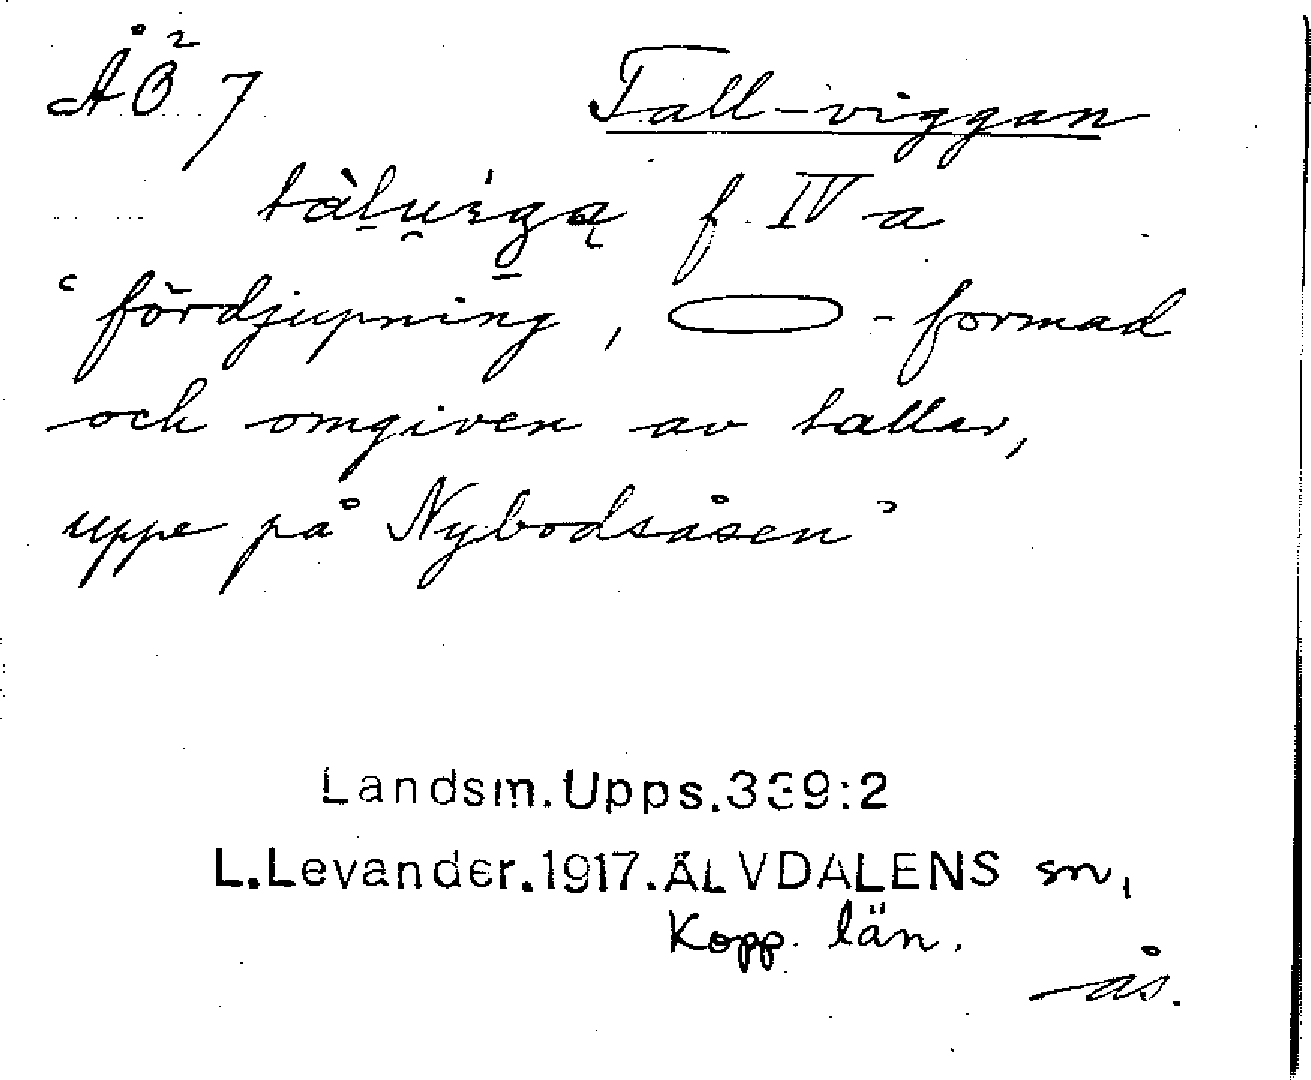 ÅÖ² 7 Tall-viggan
tàḷu̯íg̠ą f. IV a
‘fördjupning, -formad
och omgiven av tallar,
uppe på Nybodsåsen’
Landsm.Upps.339:2
L.Levander.1917.ÄLVDALENS sn,
Kopp. län.
ås.